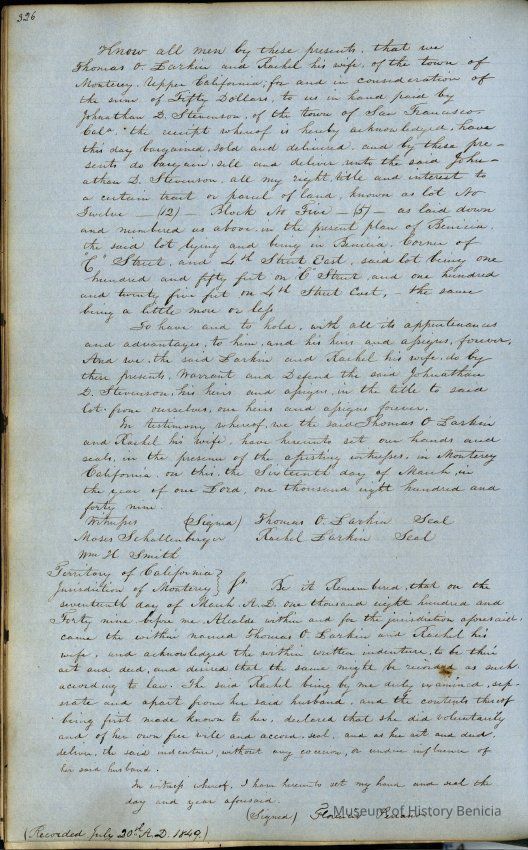 326
Know all men by these presents, that we
Thomas O. Larkin and Rachel his wife, of the town of
Monterey, Upper California, for and in consideration of
the sum of Fifty Dollars, to us in hand paid by
Johnathan D. Stevenson, of the town of San Francisco
Cala. the receipt whereof is hereby acknowledged, have
this day bargained, sold and delivered, and by these pre-
sents do bargain, sell and deliver unto the said John-
athan D. Stevenson, all my right, title and interest to
a certain tract or parcel of land, known as lot No
Twelve — (12) — Block No Five — (5) — as laid down
and numbered as above, in the present plan of Benicia,
the said lot lying and being in Benicia, Corner of
"C" Street, and 4th Street East, said lot being one
hundred and fifty feet on "C" Street, and one hundred
and twenty five feet on 4th Street East, — the same
being a little more or less.
To have and to hold, with all its appurtenances
and advantages, to him, and his heirs and assigns, forever,
And we, the said Larkin and Rachel his wife, do by
these presents, Warrant and Defend the said Johnathan
D. Stevenson, his heirs and assigns, in the title to said
lot, from ourselves, our heirs and assigns forever.
In testimony whereof, we the said Thomas O Larkin
and Rachel his wife, have hereunto set our hands and
seals, in the presence of the attesting witnesses, in Monterey
California, on this, the Sixteenth day of March, in
the year of our Lord, one thousand eight hundred and
forty nine.
Witnesses (Signed) Thomas O. Larkin Seal
Moses Schallenberger Rachel Larkin Seal
Wm H Smith
Territory of California }
Jurisdiction of Monterey } Ss. Be it Remembered, that on the
seventeenth day of March A.D. one thousand eight hundred and
Forty nine before me Alcalde within and for the jurisdiction aforesaid,
came the within named Thomas O Larkin and Rachel his
wife, and acknowledged the within written indenture, to be their
act and deed, and desired that the same might be recorded as such
according to law. The said Rachel being by me duly examined, sep-
arate and apart from her said husband, and the contents thereof
being first made known to her, declared that she did voluntarily
and of her own free will and accord, seal, and as her act and deed
deliver, the said indenture, without any coercion, or undue influence of
her said husband.
In witness whereof, I have hereunto set my hand and seal the
day and year aforesaid.
(Signed)
(Recorded July 20th A.D. 1849.)
Museum of History Benicia